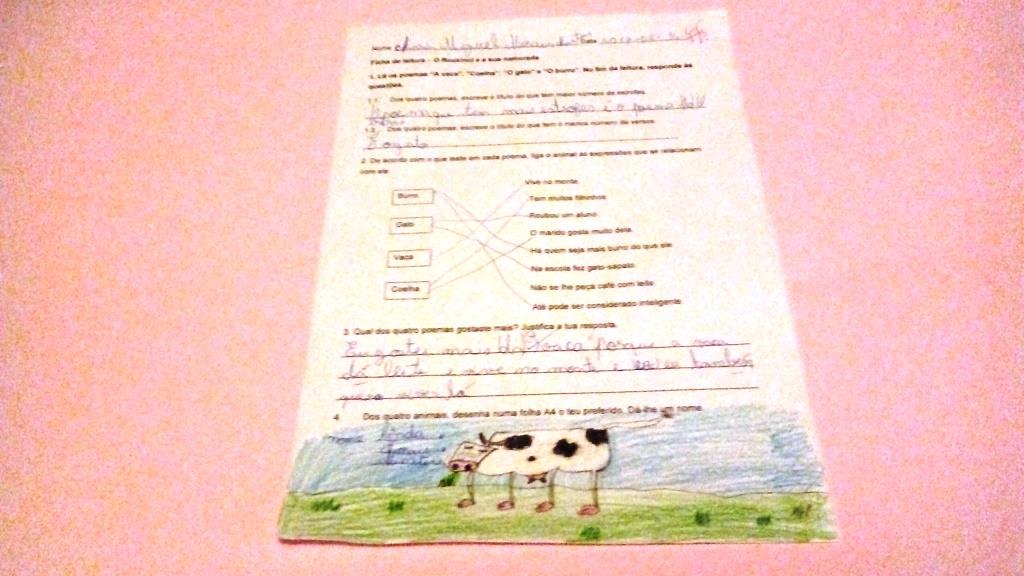 Nome Miguel Data
Ficha de leitura – O Rouxinol e a sua namorada
1. Lê os poemas "A vaca", "Coelha", "O gato" e "O burro". No fim da leitura, responde às
questões.
1.1. Dos quatro poemas, escreve o título do que tem maior número de estrofes.
O poema que tem mais estrofes é o poema
1.2. Dos quatro poemas, escreve o título do que tem o menos número de versos.
O gato
2. De acordo com o que leste em cada poema, liga o animal às expressões que se relacionam
com ele.
Burro
Gato
Vaca
Coelha
Vive no monte
Tem muitos filhinhos
Roubou um aluno
O marido gosta muito dela
Há quem seja mais burro do que ele
Na escola fez gato-sapato
Não se lhe peça café com leite
Até pode ser considerado inteligente
3. Qual dos quatro poemas gostaste mais? Justifica a tua resposta.
Eu gostei mais da "vaca" porque a vaca
dá leite e vive no monte e eu também
quero viver lá
4. Dos quatro animais, desenha numa folha A4 o teu preferido. Dá-lhe um nome.
nome linda